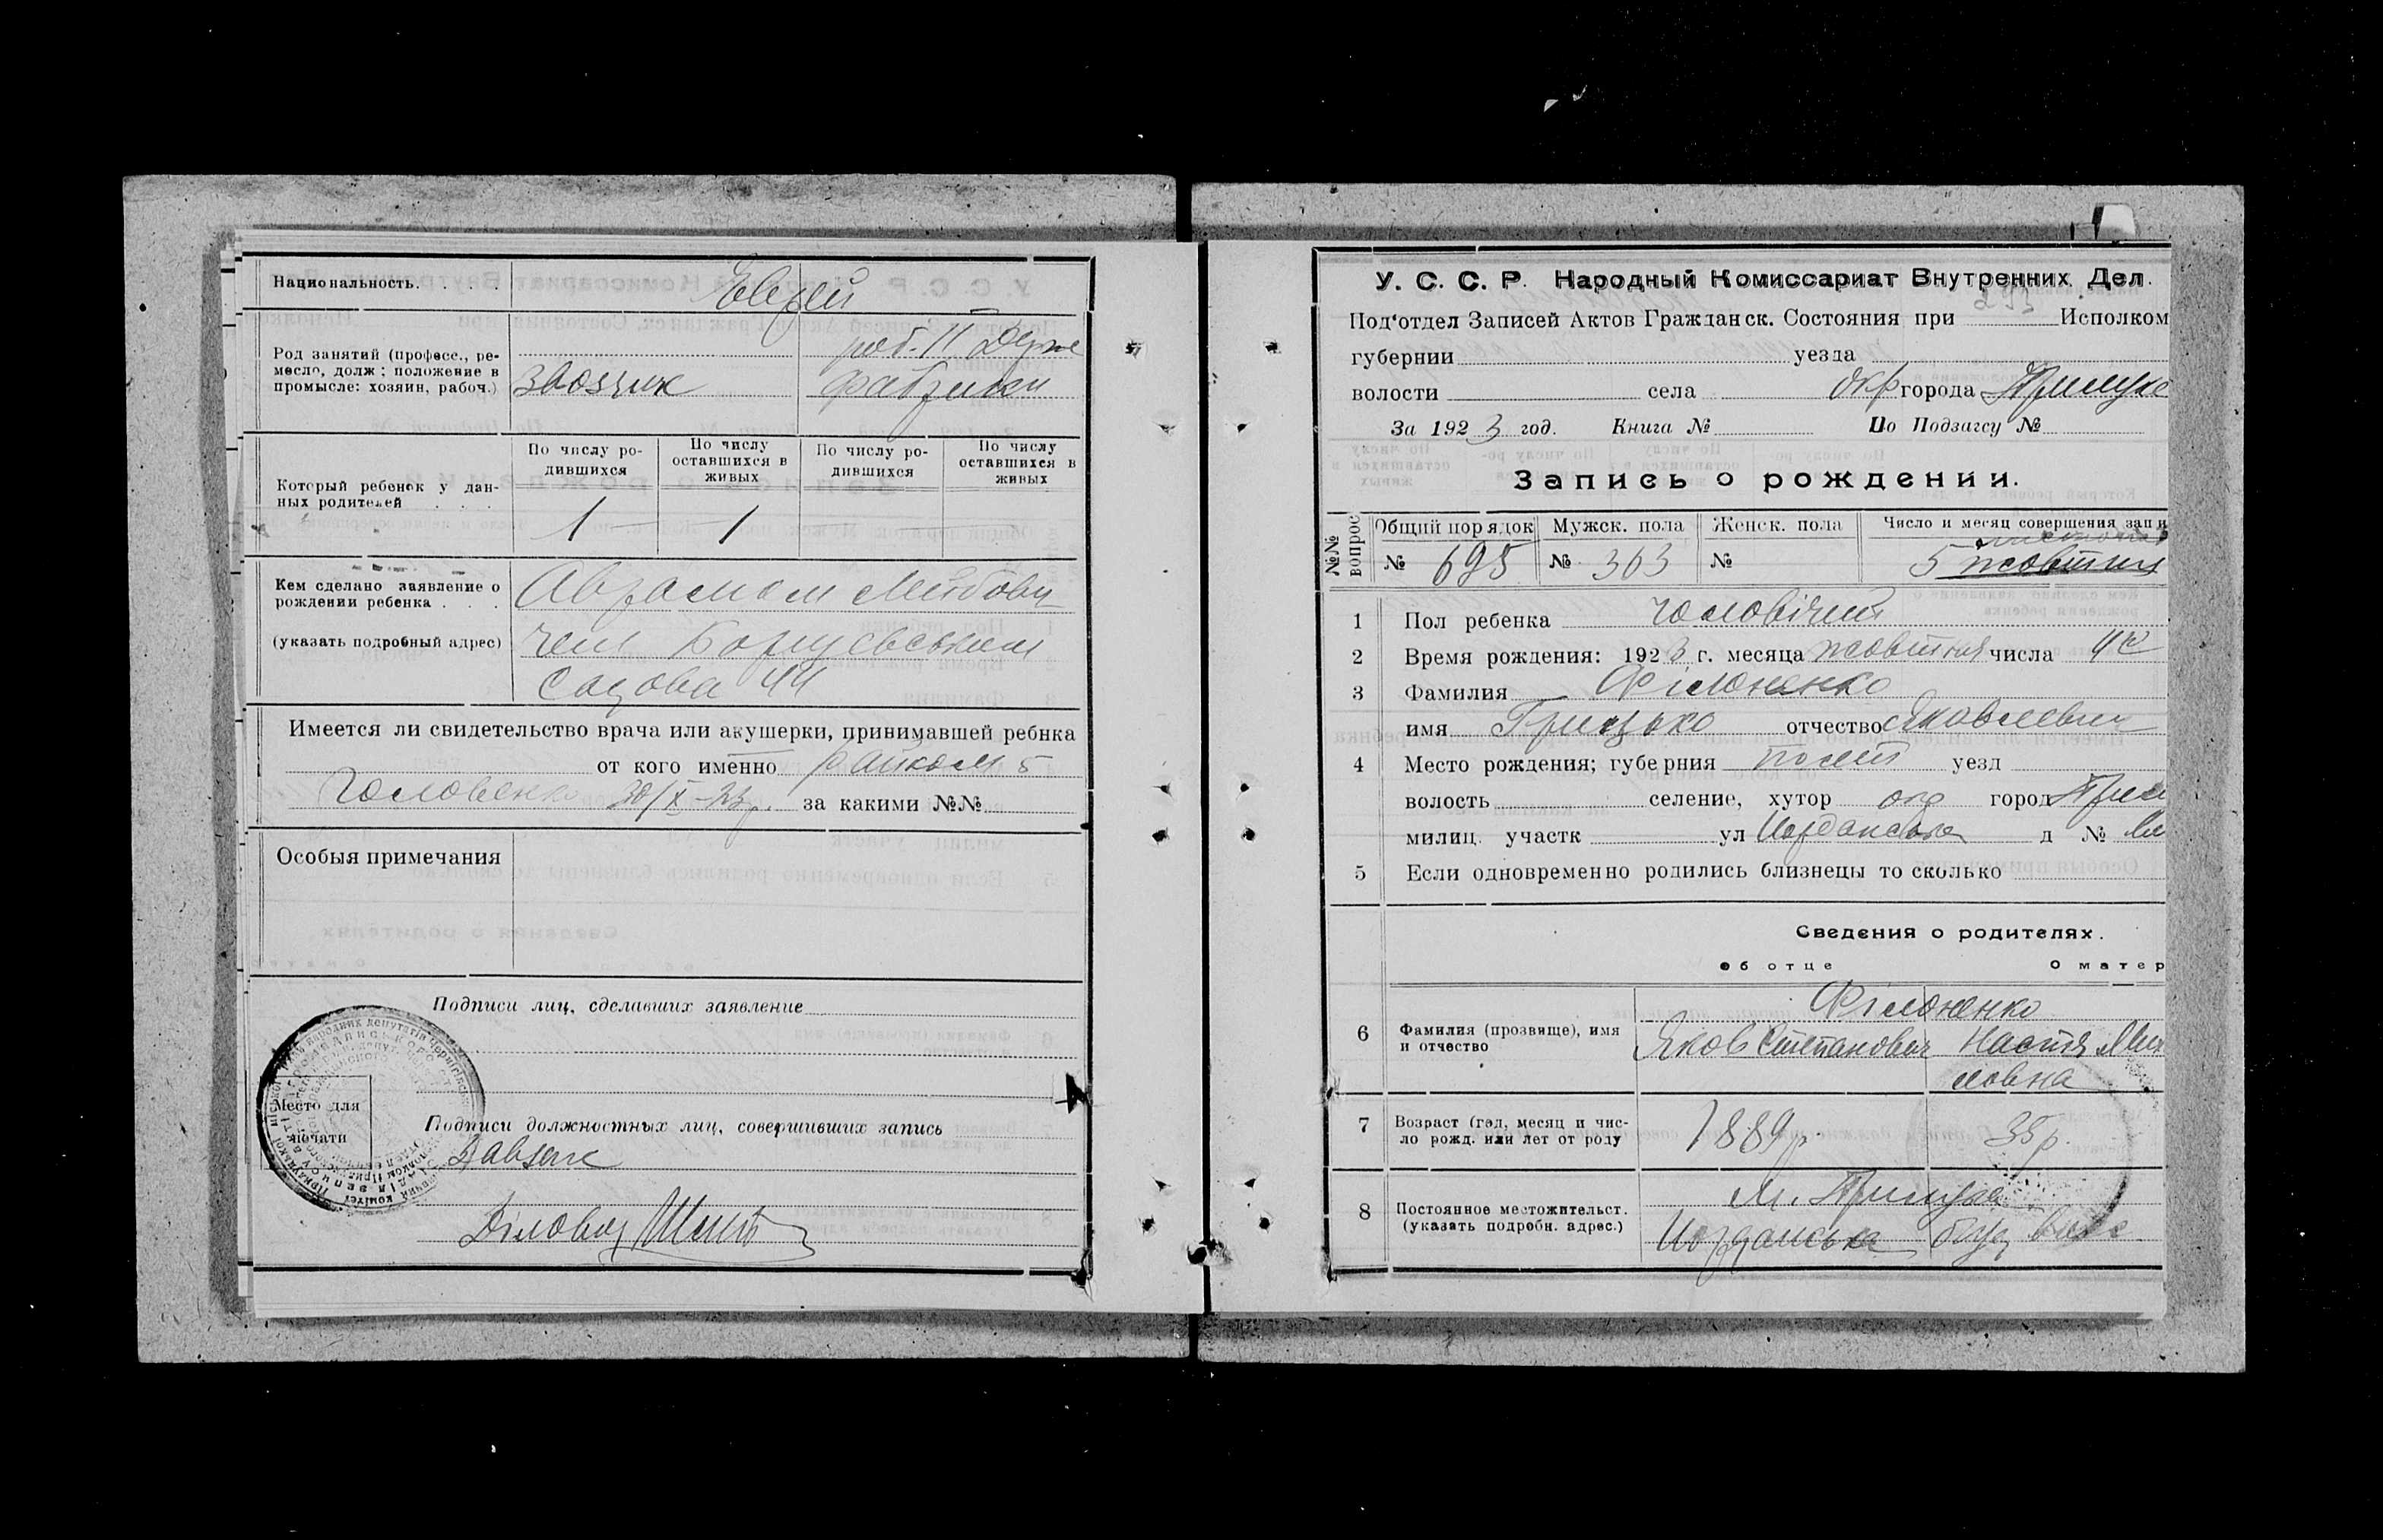 Национальность. . . . Еврей
Род занятий (професс., ре-
месло, долж; положение в
промысле: хозяин, рабоч.)
звозчик
роб. II Держ
фабрики
Который ребенок у дан-
ных родителей . . .
По числу ро-
дившихся
По числу
оставшихся в
живых
По числу ро-
дившихся
По числу
оставшихся в
живых
1 1
Кем сделано заявление о
рождении ребенка . . .
(указать подробный адрес)
Аврамом Лейбови
чем
Садова 44
Имеется ли свидетельство врача или акушерки, принимавшей ребнка
от кого именно
Головенко 30/X-23р. за какими №№
Особыя примечания
Подписи лиц, сделавших заявление
Место для
печати
Подписи должностных лиц, совершивших запись
Діловод
У. С. С. Р. Народный Комиссариат Внутренних Дел.
Под‘отдел Записей Актов Гражданск. Состояния при Исполком
губернии уезда
волости села окр города Прилуке
За 1923 год. Книга № По Подзагсу №
Запись о рождении.
№№
вопрос
Общий порядок Мужск. пола Женск. пола Число и месяц совершения запи
листопада
№ 695 № 363 № 5 жовтня
1 Пол ребенка чоловічий
2 Время рождения: 1923 г. месяца жовтня числа
3 Фамилия Філоненко
имя Грицько отчество Яковлевич
4 Место рождения; губерния полт уезд
волость селение, хутор город Прил
милиц. участк ул Иорданська д №
5 Если одновременно родились близнецы то сколько
Сведения о родителях.
об отце О матер
6 Фамилия (прозвище), имя
и отчество
Філоненко
Яков Степанович Настя Мих
ловна
7 Возраст (год, месяц и чис-
ло рожд. или лет от роду
1889р. 35р.
8 Постоянное местожительст.
(указать подробн. адрес.)
м. Прилука
Иорданська буд